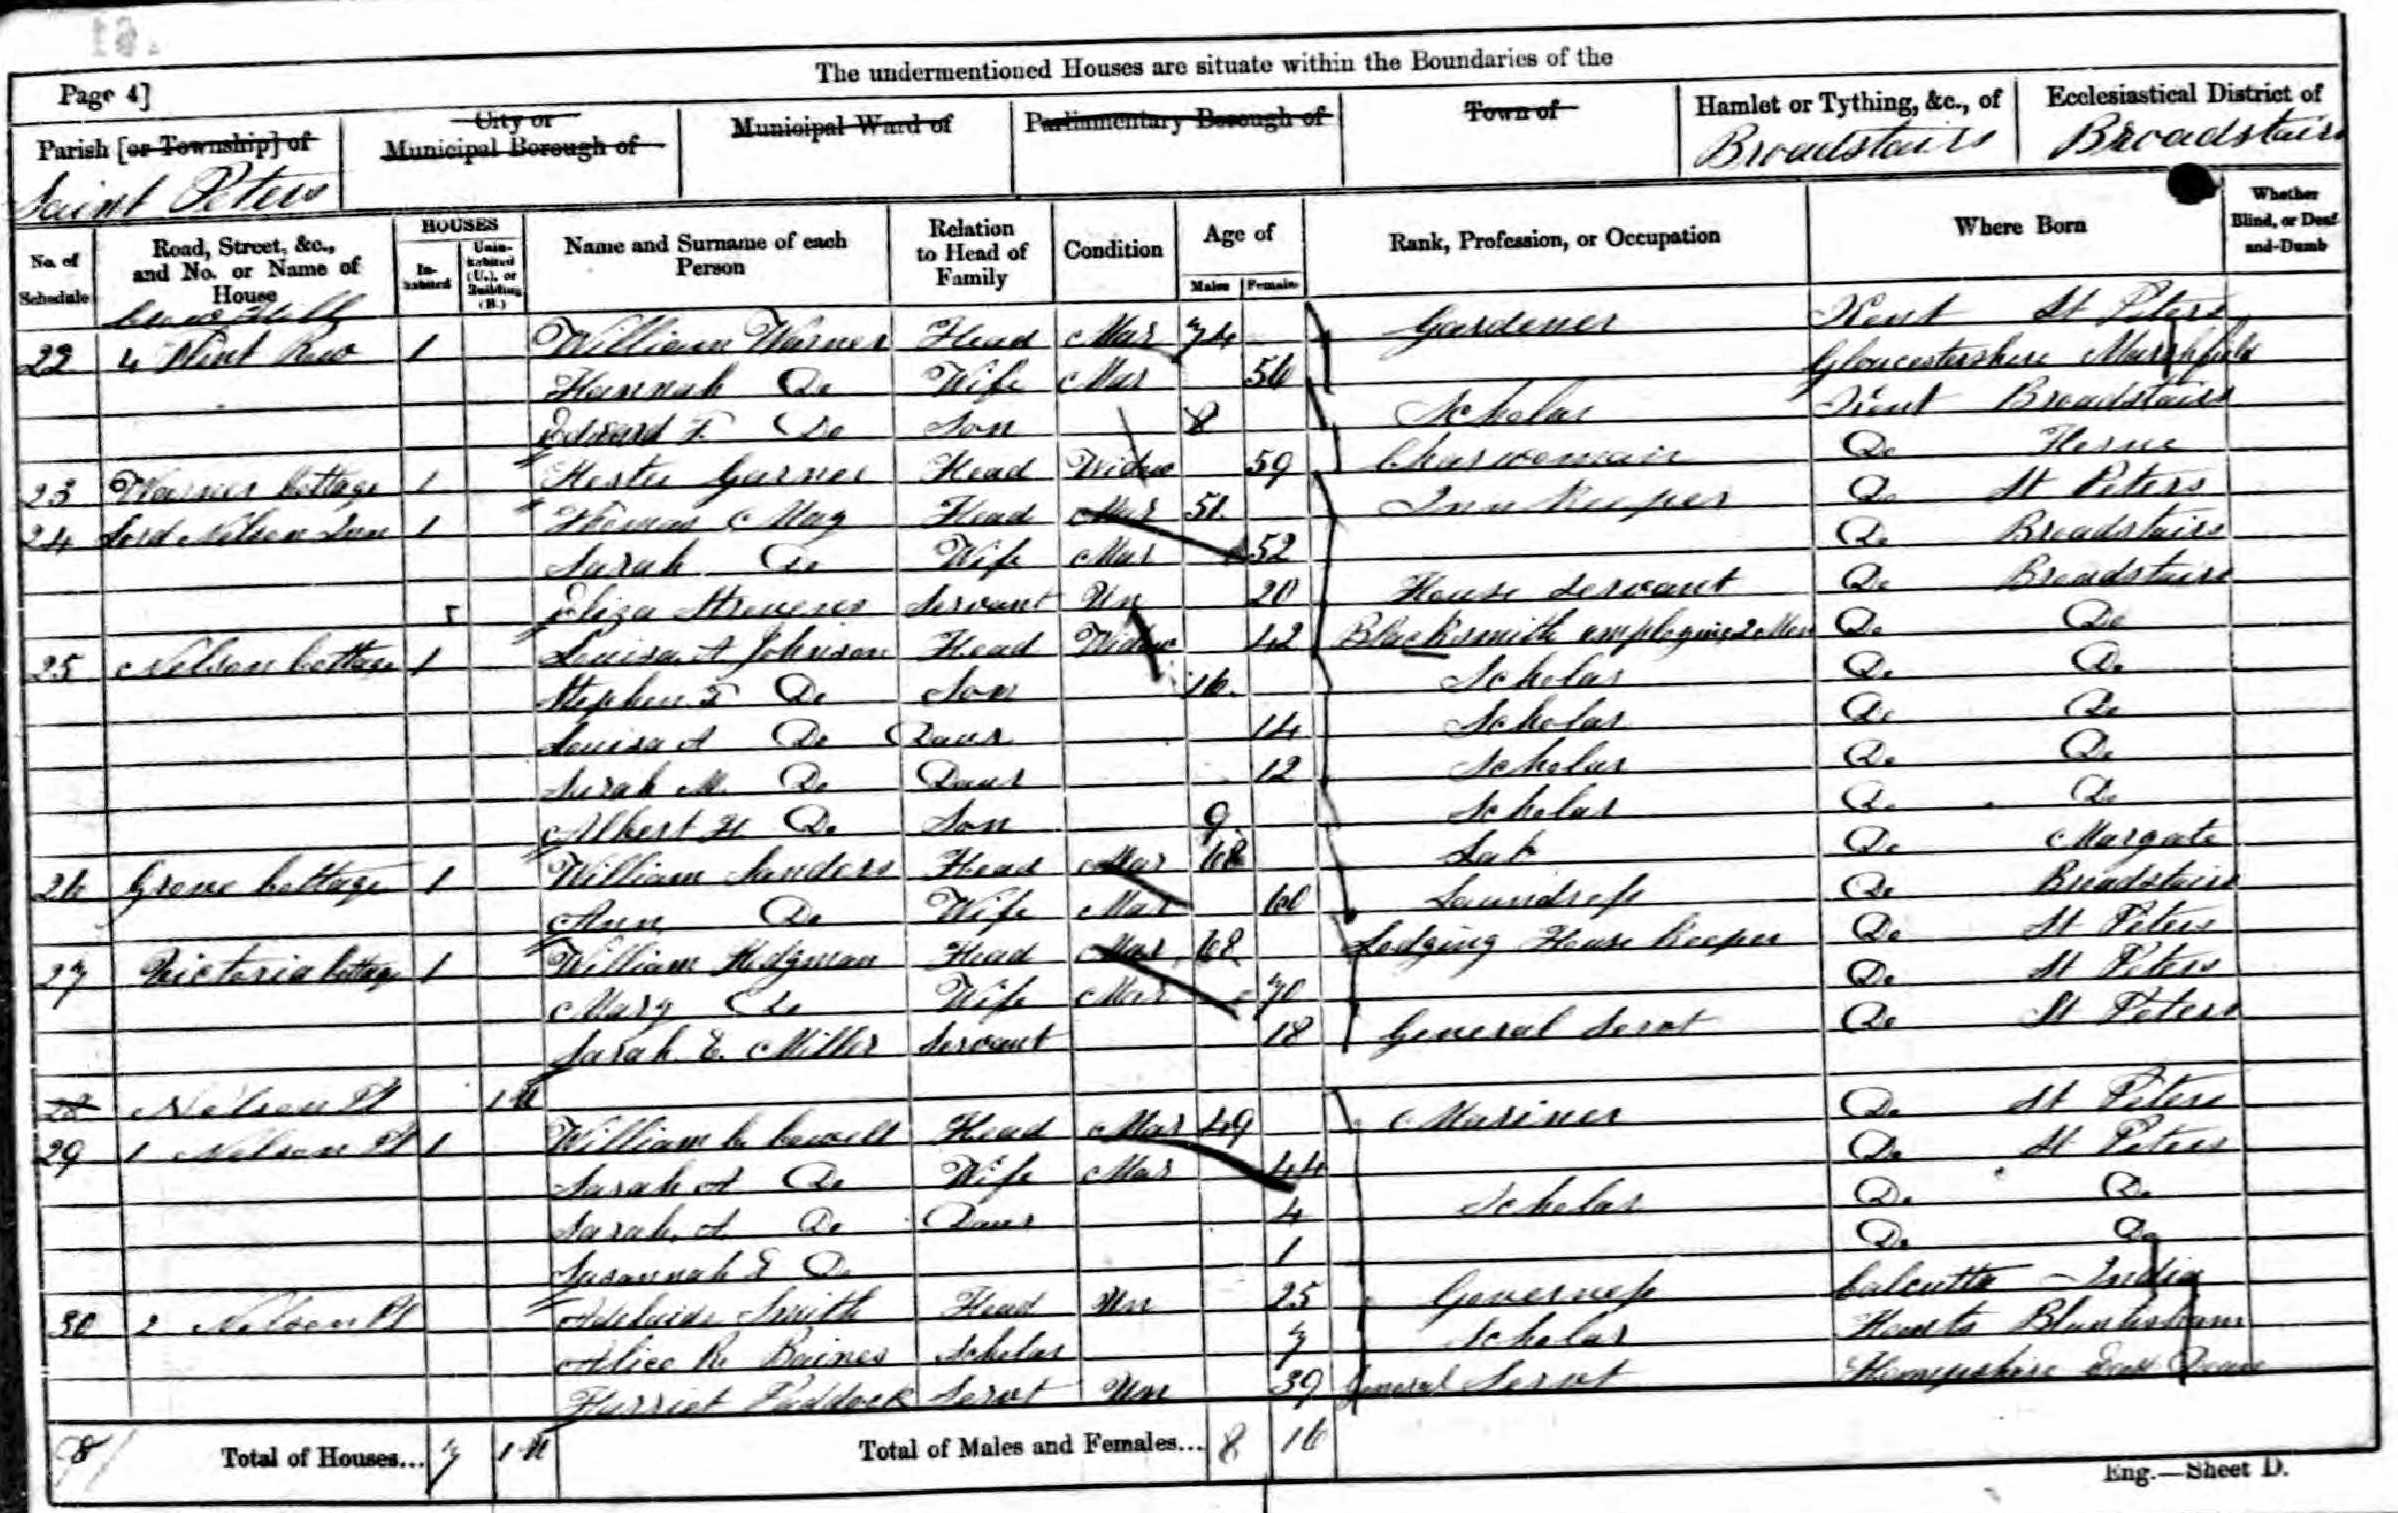 The undermentioned Houses are situate within the Boundaries of the
Page 4]
Parish [or Township] of
City or Municipal Borough of
Municipal Ward of
Parliamentary Borough of
Town of
Hamlet or Tything, &c., of
Ecclesiastical District of
Saint Peters
Broadstairs
Broadstairs
No. of Schedule
Road, Street, &c., and No. or Name of House
HOUSES
In-habited
Unin-habited (U.), or Building (B.)
Name and Surname of each Person
Relation to Head of Family
Condition
Age of
Males
Females
Rank, Profession, or Occupation
Where Born
Whether Blind, or Deaf-and-Dumb
22 4 Flint Row 1 William Warner Head Mar 74 Gardener Kent St Peters
Hannah Do Wife Mar 56 Gloucestershire Marshfield
Edward F. Do Son 8 Scholar Kent Broadstairs
23 Warner Cottage 1 Hester Garner Head Widow 59 Charwoman Do Herne
24 Lord Nelson Inn 1 Thomas May Head Mar 51 Inn Keeper Do St Peters
Sarah Do Wife Mar 52 Do Broadstairs
Eliza Servant Un 20 House Servant Do Broadstairs
25 Nelson Cottage 1 Louisa A Johnson Head Widow 42 Blacksmith employing 2 Men Do Do
Stephen T Do Son 16 Scholar Do Do
Louisa A Do Daur 14 Scholar Do Do
Sarah M. Do Daur 12 Scholar Do Do
Albert H Do Son 9 Scholar Do Do
26 Grove Cottage 1 William Sanders Head Mar 68 Lab Do Margate
Ann Do Wife Mar 60 Laundress Do Broadstairs
27 Victoria Cottage 1 William Hodgman Head Mar 68 Lodging House Keeper Do St Peters
Mary Do Wife Mar 70 Do St Peters
Sarah E. Miller Servant 18 General Servt Do St Peters
28 Nelson Pl 1 U
29 1 Nelson Pl 1 William C. Cowell Head Mar 49 Mariner Do St Peters
Sarah A Do Wife Mar 44 Do St Peters
Sarah A. Do Daur 4 Scholar Do Do
Susannah E Do 1 Do Do
30 2 Nelson Pl Adelaide Smith Head Un 25 Governess Calcutta - India
Alice R. Baines Scholar 7 Scholar Hunts Bluntisham
Harriet Paddock Servt Un 39 General Servt Hampshire East Dean
8 Total of Houses... 7 1 U Total of Males and Females... 8 16
Eng.—Sheet D.